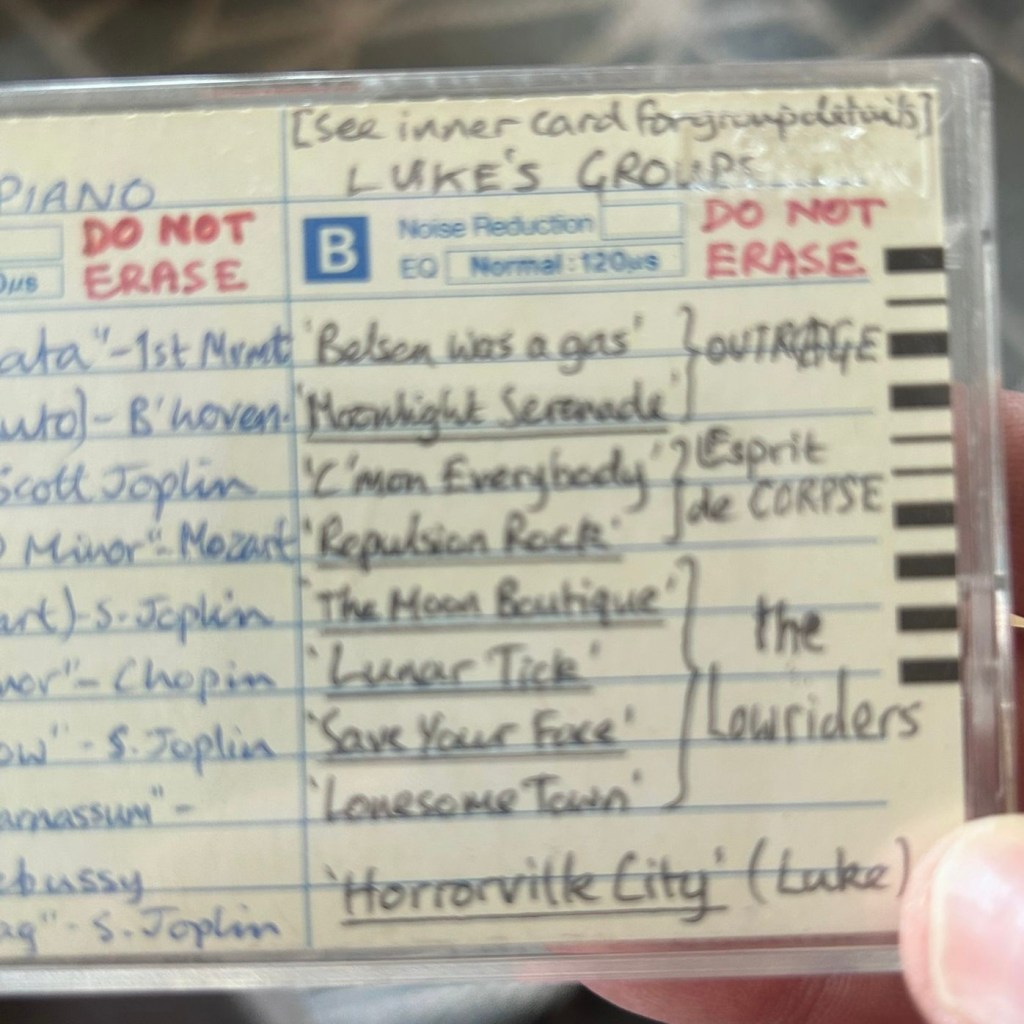 [See inner card for group details]
LUKE'S GROUPS
PIANO
DO NOT
ERASE
0µs
ata" - 1st Mvmt
uto) - B'hoven.
Scott Joplin
Minor" - Mozart
art) - S. Joplin
nor" - Chopin
ow" - S. Joplin
arnassum" -
ebussy
ag" - S. Joplin
B
Noise Reduction
EQ Normal : 120µs
DO NOT
ERASE
'Belsen was a gas'
'Moonlight Serenade'
OUTRAGE
'C'mon Everybody'
'Repulsion Rock'
Esprit
de CORPSE
'The Moon Boutique'
'Lunar Tick'
'Save Your Face'
'Lonesome Town'
the
Lowriders
'Horrorville City' (Luke)